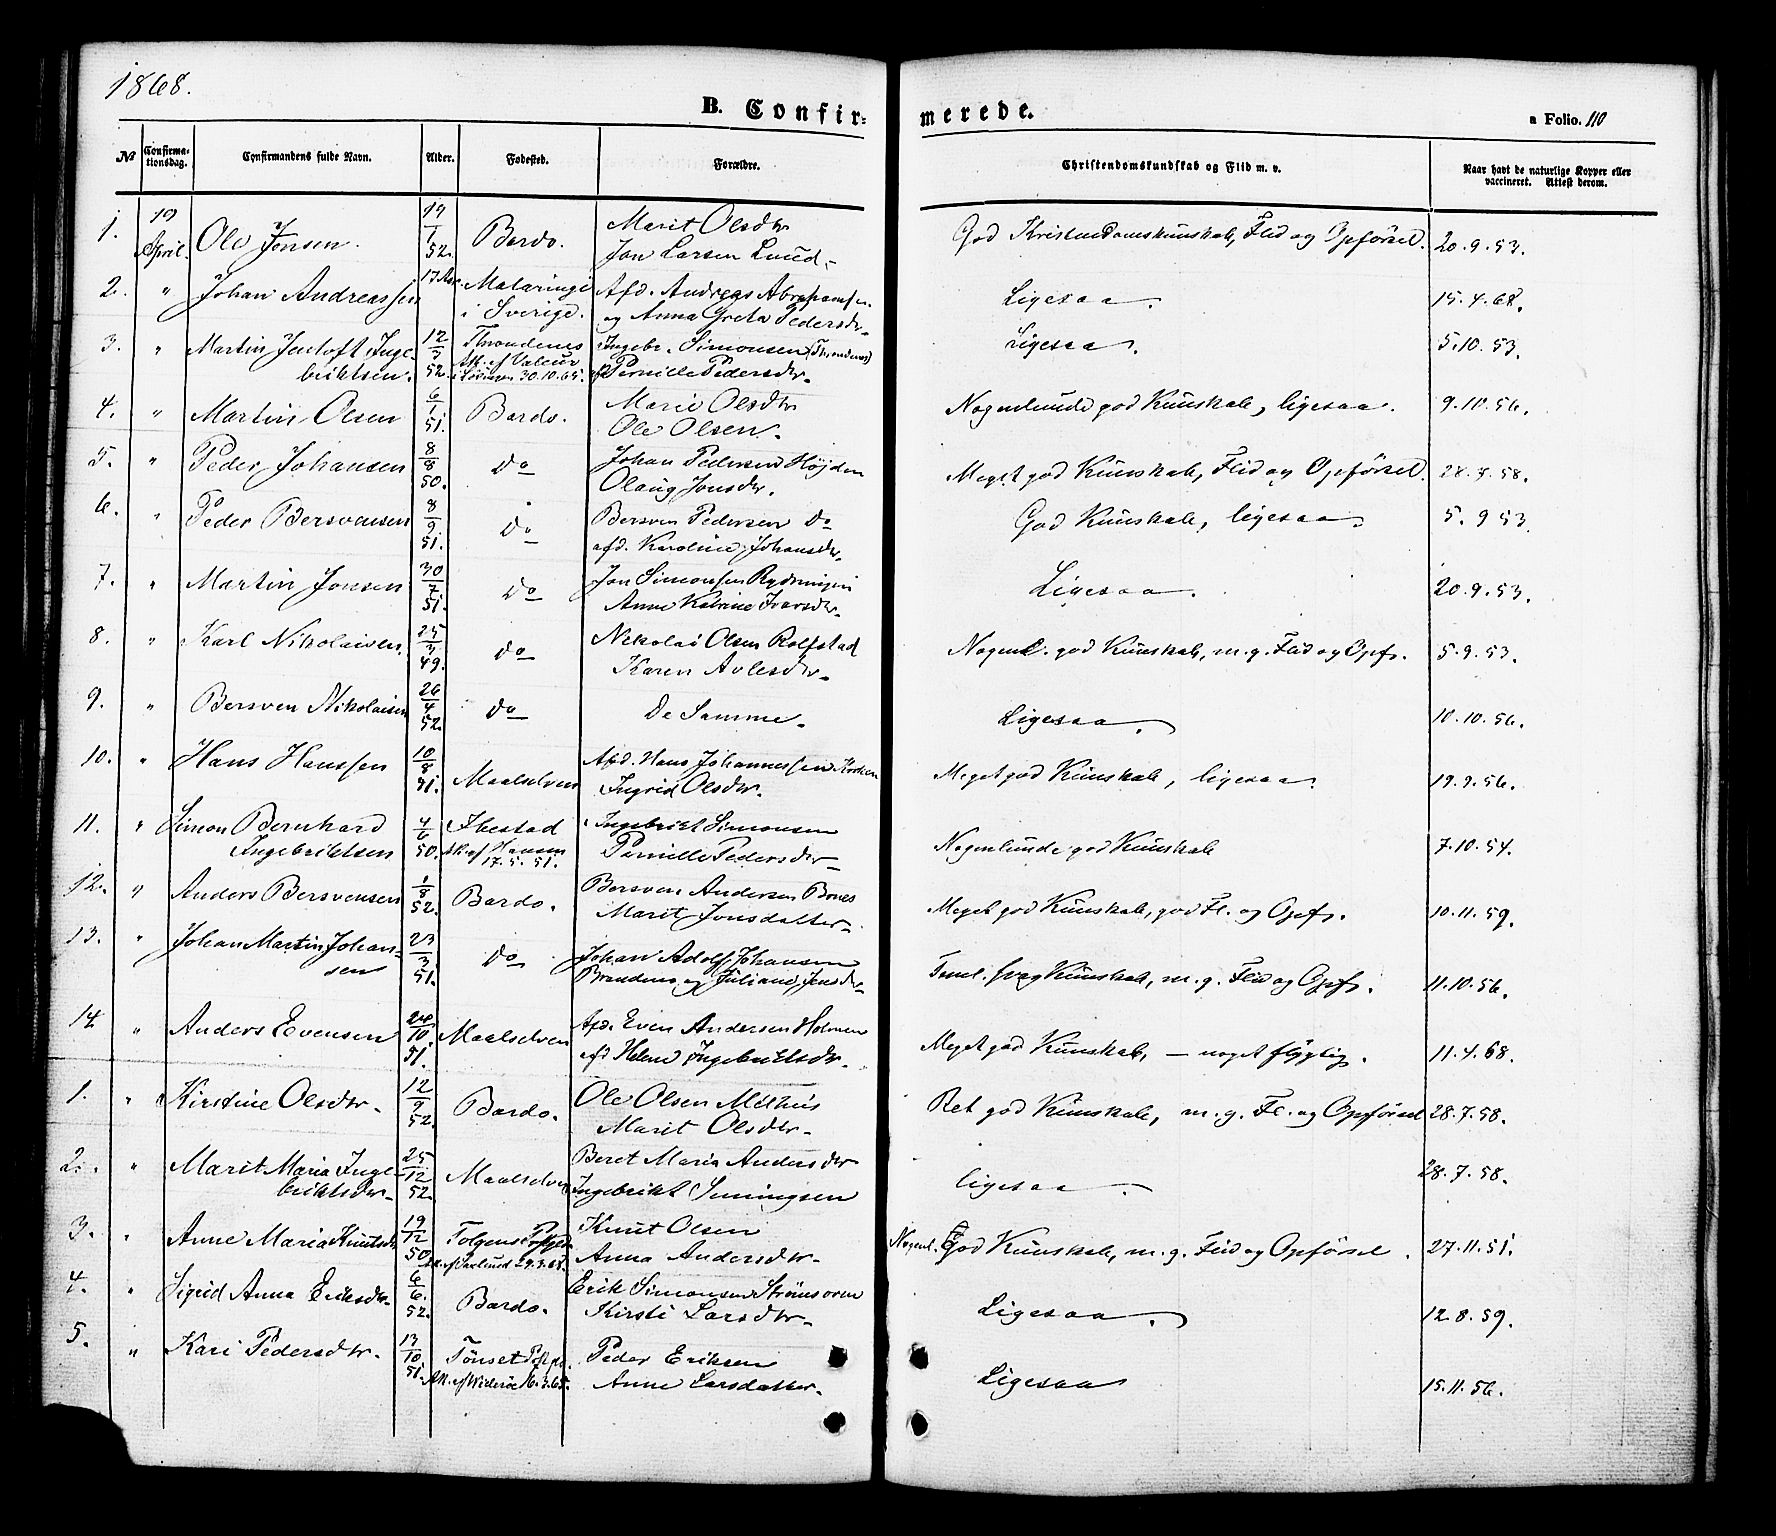 1868.
B. Confirmerede.
a Folio. 110
No Confirmationsdag. Confirmandens fulde Navn. Alder. Fødested. Forældre. Christendomskundskab og Flid m. v. Naar havt de naturlige Kopper eller vaccineret. Attest derom.
1. 19 April. Ole Jonsen. 19/1 52. Bardo. Marit Olsdtr
Jon Larsen Lund. God Kristendomskunskab, Flid og Opførsel. 20.9.53.
2. " Johan Andreassen 17 Aar. Mataringi
i Sverige. Afd. Andreas Abrahamsen
og Anna Greta Pedersdtr. Ligesaa. 15.4.68.
3. " Martin Jentoft Inge-
briktsen. 12/3 52. Throndenes
Att. af
30.10.65. Ingebr. Simonsen (Throndenes)
Pernille Pedersdtr. Ligesaa. 5.10.53.
4. " Martin Olsen 6/1 51. Bardo. Marie Olsdtr
Ole Olsen. Nogenlunde god Kunskab, ligesaa. 9.10.56.
5. " Peder Johansen 8/8 50. Do Johan Pedersen Højden
Olaug Jonsdtr. Meget god Kunskab, Flid og Opførsel. 28.7.58.
6. " Peder Bersvensen 8/9 51. Do Bersven Pedersen Do
afd. Karoline Johansdtr. God Kunskab, ligesaa. 5.9 53.
7. " Martin Jonsen 30/7 51. Do Jon Simonsen Rydningen
Anne Katrine Ivarsdtr. Ligesaa. 20.9.53.
8. " Karl Nikolaisen. 25/3 49. Do Nikolai Olsen Rolfstad
Karen Avlesdtr. Nogenl. god Kunskab, m.g. Flid og Opfs. 5.9.53.
9. " Bersven Nikolaisen 26/4 52. Do De Samme. Ligesaa. 10.10.56.
10. " Hans Hanssen 10/8 51. Maalselven Afd. Hans Johannessen
Ingrid Olsdtr. Meget god Kunskab, ligesaa. 19.9.56.
11. " Simon Bernhard
Ingebriktsen 4/6 50. Ibestad
Att. af Hansen
17.5.51. Ingebrikt Simonsen
Pernille Pedersdtr. Nogenlunde god Kunskab 7.10.54.
12. " Anders Bersvensen 1/8 52. Bardo. Bersven Andersen Bones
Marit Jonsdatter. Meget god Kunskab, god Fl. og Opfs. 10.11.59.
13. " Johan Martin Johan-
sen 23/3 51. Do Johan Adolf Johansen
og Juliane Jensdtr. Teml. svag Kunskab, m.g. Flid og Opfs. 11.10.56.
14. " Anders Evensen 24/10 51. Maalselven Afd. Even Andersen Holmen
afd Helene Ingebriktsdtr. Meget god Kunskab, — noget flygtig. 11.4.68.
1. " Kirstine Olsdtr. 12/9 52. Bardo. Ole Olsen Melhus
Marit Olsdtr. Ret god Kunskab, m.g. Fl. og Opførsel 28.7.58.
2. " Marit Maria Inge-
briktsdtr. 25/12 52. Maalselven Beret Maria Andersdtr
Ingebrikt Simingsen ligesaa. 28.7.58.
3. " Anne Maria Knutsdtr 19/12 50. Tolgens Præstgj.
Knut Olsen
Anna Andersdtr. Nogenl. God Kunskab, m.g. Flid og Opførsel. 27.11.51.
4. " Sigrid Anna Eriksdtr. 6/6. 52. Bardo. Erik Simonsen Strömsören
Kirsti Larsdtr. Ligesaa. 12.8.59.
5. " Kari Pedersdtr. 13/10 51. Tönset
Peder Eriksen
Anne Larsdatter. Ligesaa 15.11.56.